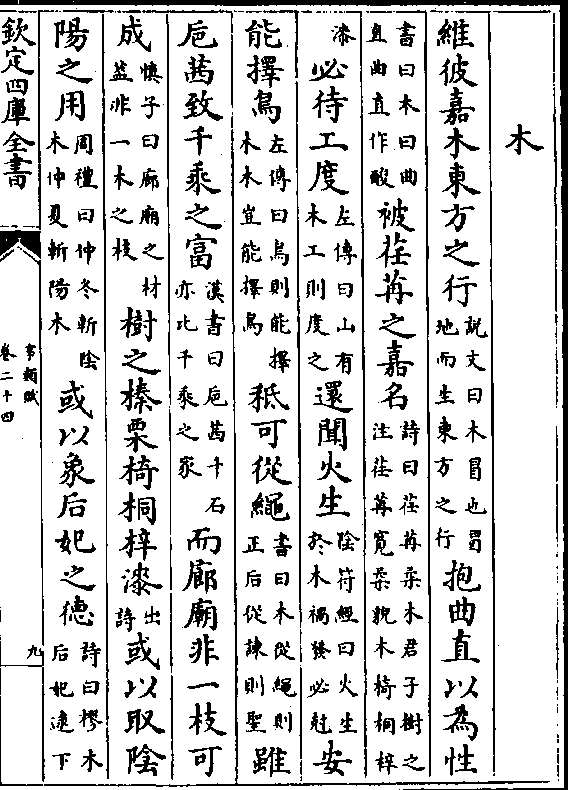 木
維彼嘉木東方之行說文曰木冒也冒地而生東方之行抱曲直以為性
書曰木曰曲直曲直作酸被荏苒之嘉名詩曰荏苒柔木君子樹之注荏苒寬柔貌木椅桐梓
漆必待工度左傳曰山有木工則度之還聞火生陰符經曰火生於木禍發必尅安
能擇鳥左傳曰鳥則能擇木木豈能擇鳥秪可從繩書曰木從繩則正后從諫則聖雖
巵茜致千乗之富漢書曰巵茜千石亦比千乗之家而廊廟非一枝可
成慎子曰廊廟之材蓋非一木之枝樹之榛栗椅桐梓漆出詩或以取陰
陽之用周禮曰仲冬斬陰木仲夏斬陽木或以象后妃之德詩曰樛木后妃逮下
欽定四庫全書
事類賦
卷二十四
九